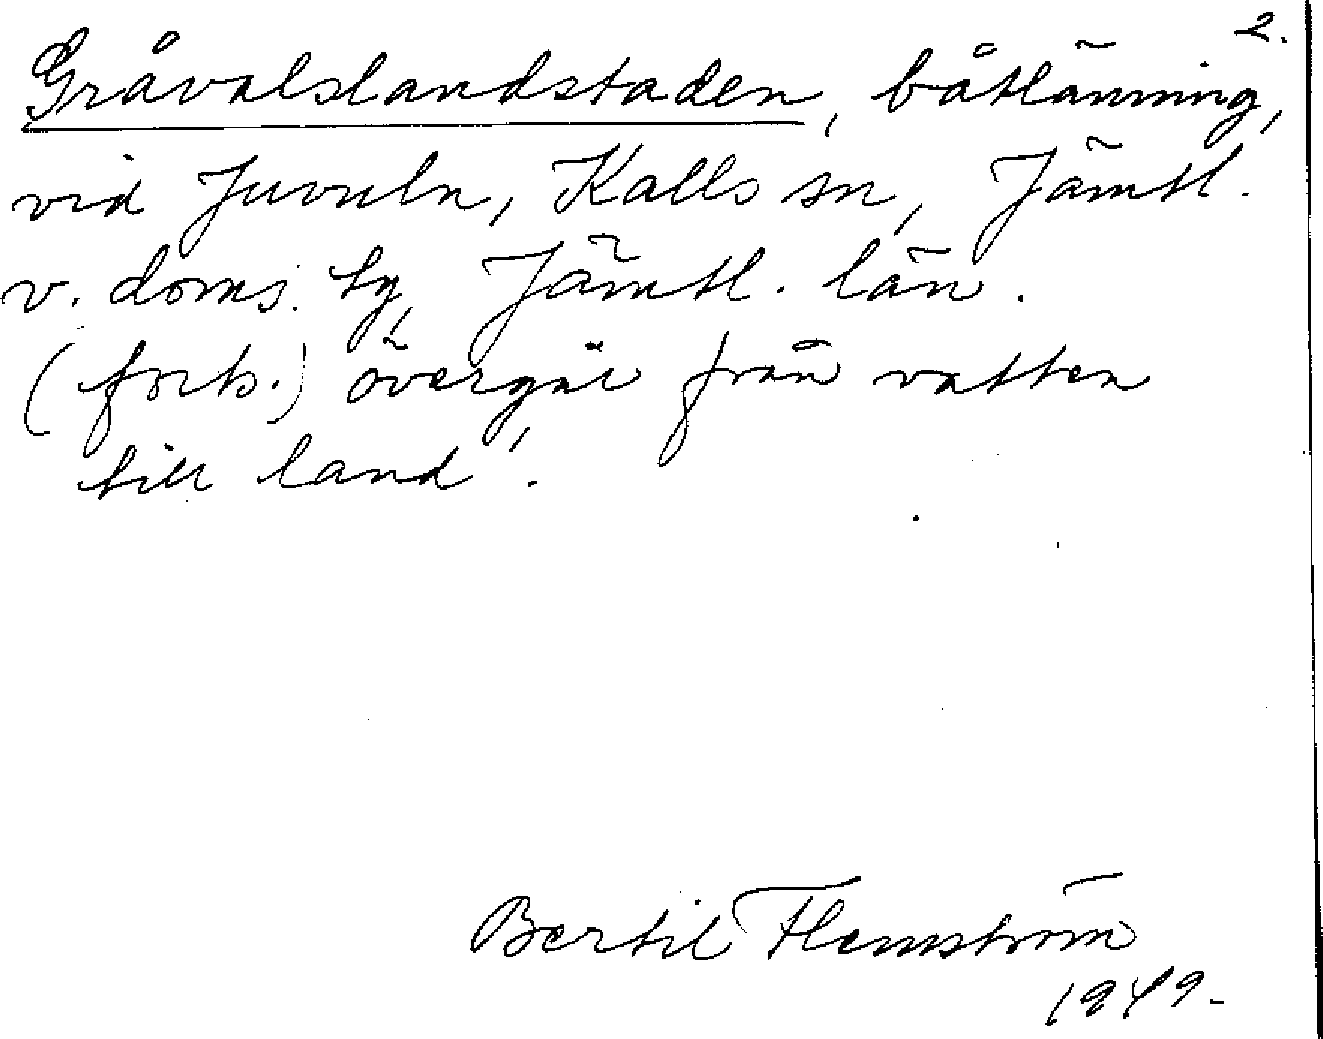 2.
Gråvalslandstaden, båtlänning,
vid Juvuln, Kalls sn, Jämtl.
v. doms. tg, Jämtl. län.
(forts.) övergår från vatten
till land'.
Bertil Flemström
1949.